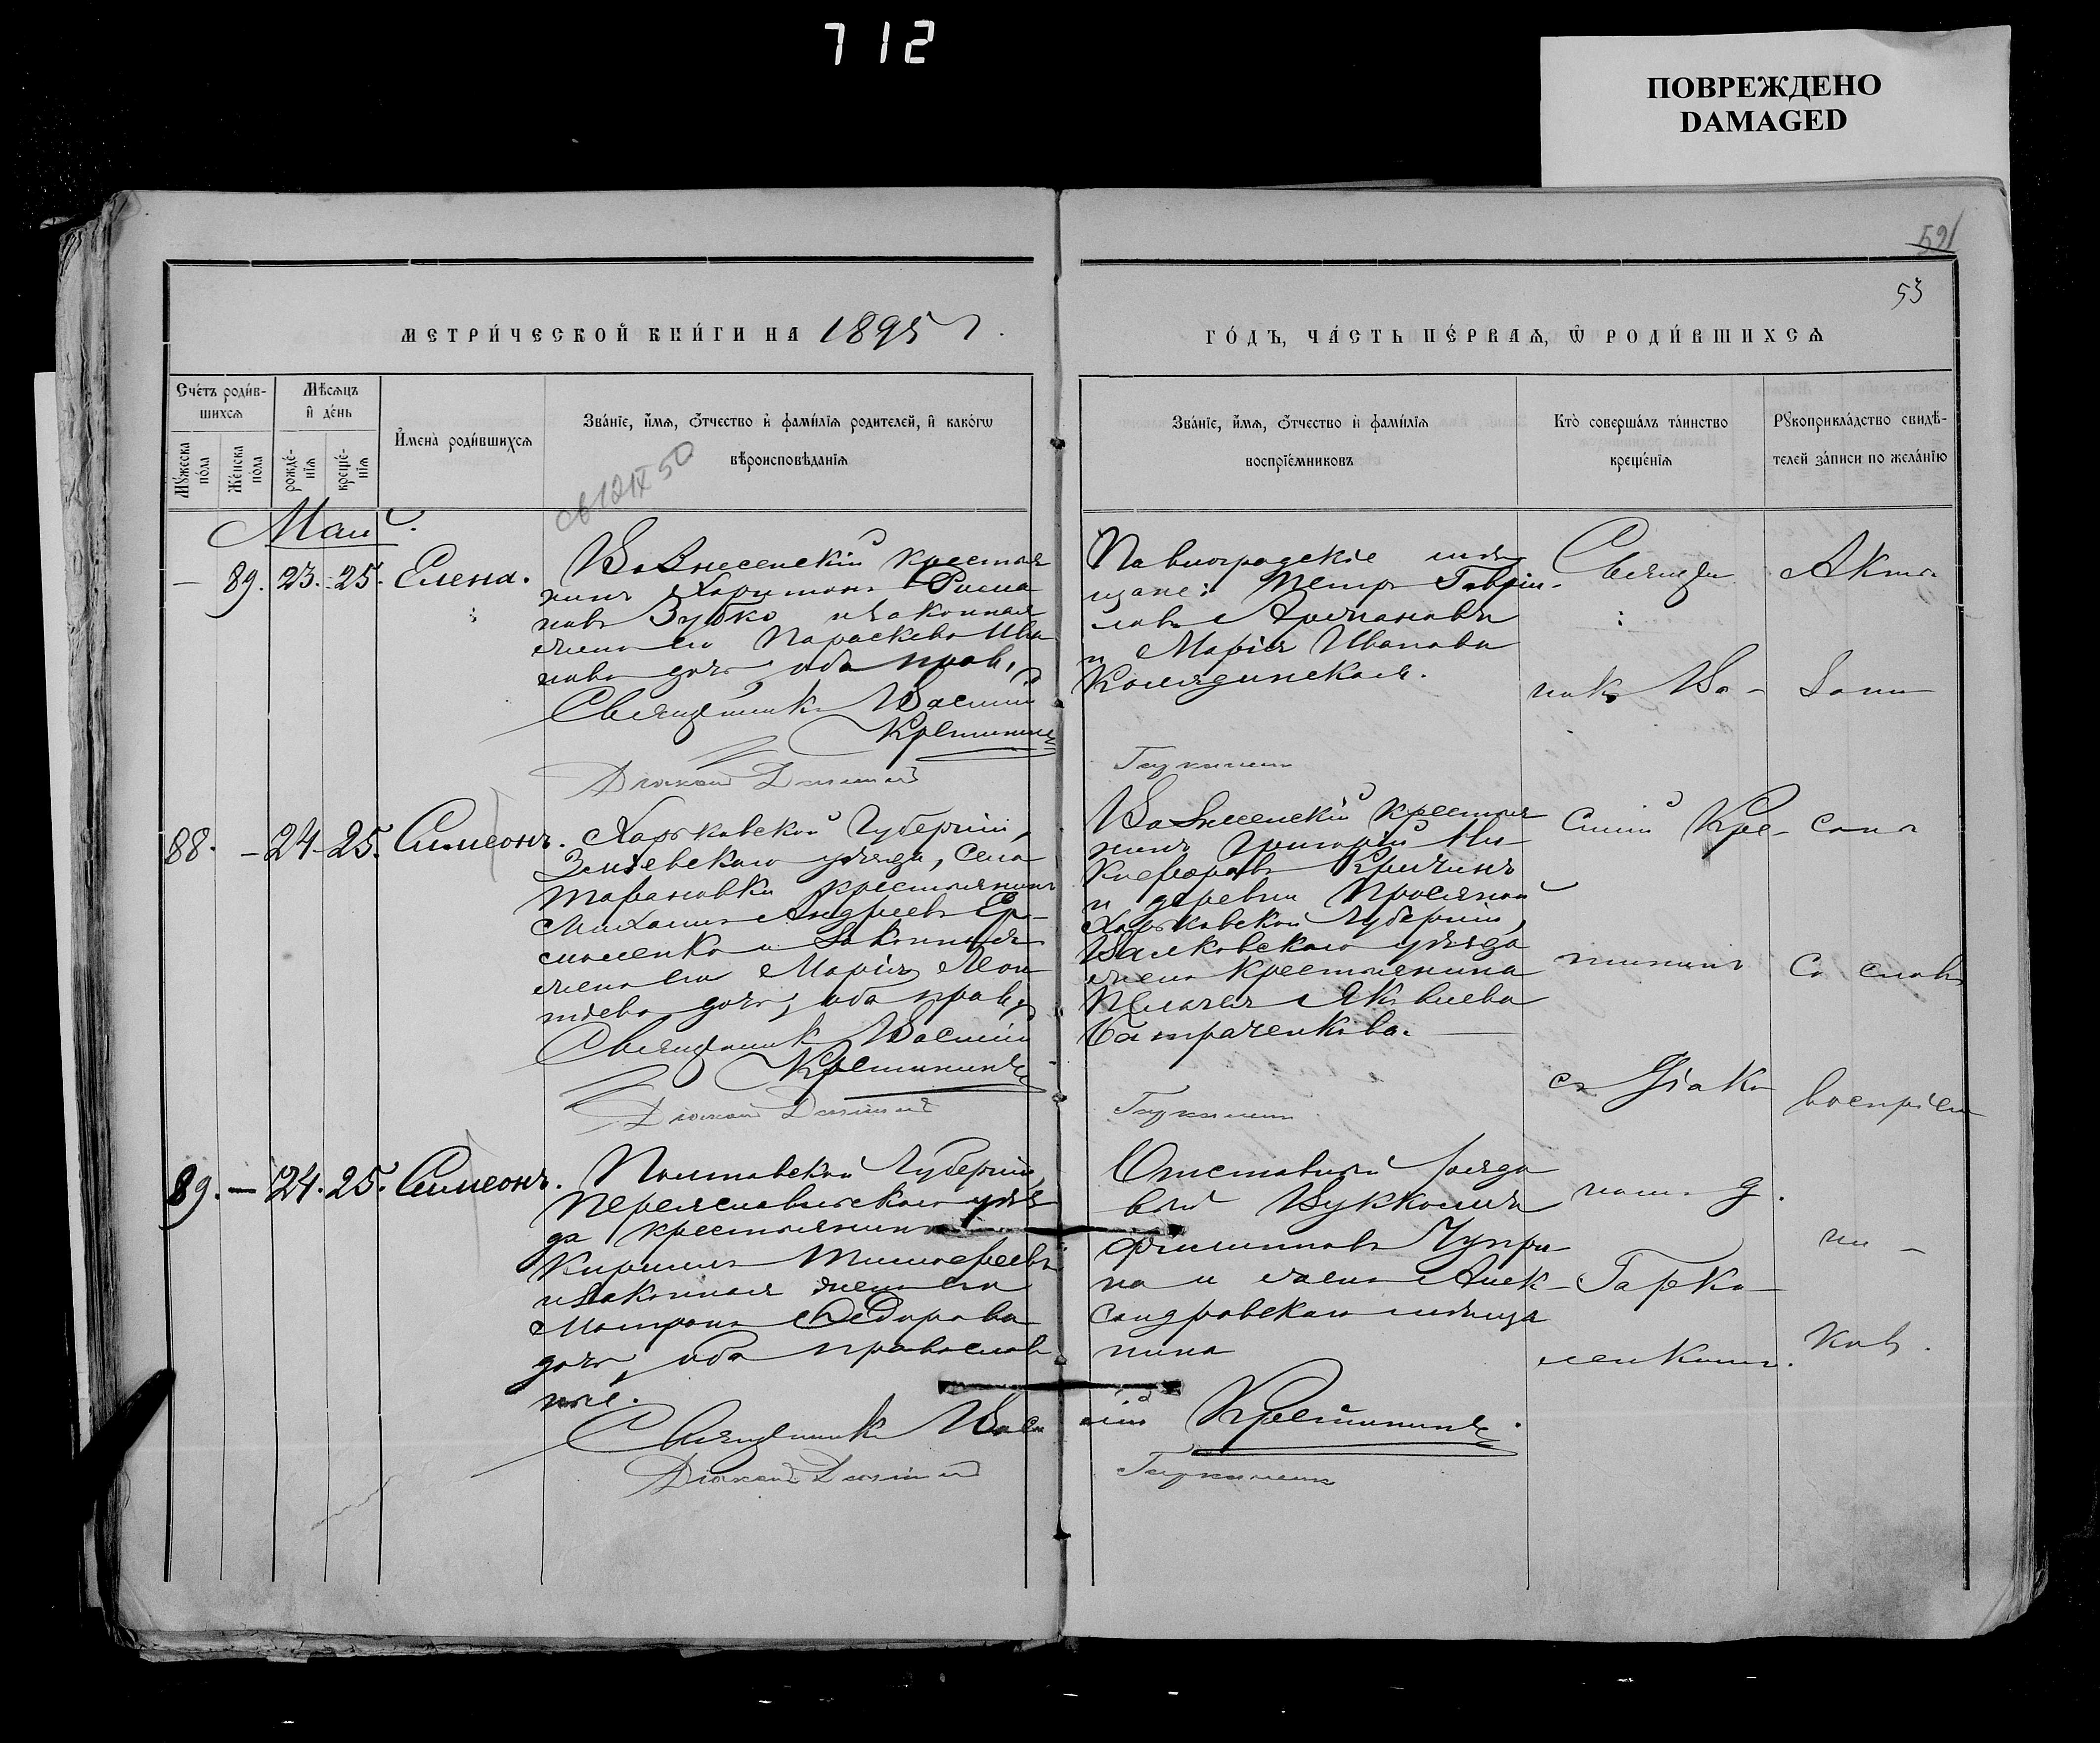 712
ПОВРЕЖДЕНО
DAMAGED
521
53
МЕТРИ́ЧЕСКОЙ КНИ́ГИ НА 1895 г.
ГО́ДЪ, ЧА́СТЬ ПЕ́РВАѦ, Ѡ РОДИ́ВШИХСѦ
Сче́тъ роди́в-
шихсѧ
Мѣ́сѧцъ
и҆ де́нь
Му́жеска
по́ла
Же́нска
по́ла
рожде́-
нїѧ
креще́-
нїѧ
И҆мена̀ роди́вшихсѧ
Зва́нїе, и҆́мѧ, ѻ҆́тчество и҆ фами́лїѧ родителей, и҆ како́гѡ
вѣроисповѣ́данїѧ
Зва́нїе, и҆́мѧ, ѻ҆́тчество и҆ фами́лїѧ
воспрїе́мниковъ
Кто̀ соверша́лъ та́инство
креще́нїѧ
Рꙋкоприкла́дство свидѣ́-
телей за́писи по жела́нїю
Май.
— 89. 23. 25. Елена.
Вознесенскій крестья
нинъ Харитонъ
новъ Зубко и законная
жена его Параскева Ива
нова дочь, оба прав.
Священникъ Василій
Крестининъ
Діаконъ
Павлоградскіе мѣ
щане: Петръ Гаврии-
ловъ
и Марія Иванова
Свяще
никъ Ва-
Акто
88. — 24. 25. Симеонъ.
Харьковской Губерніи,
Зміевскаго уѣзда, села
Тарановки крестьянинъ
Михаилъ Андреевъ Ер-
моленко и законная
жена его Марія Леон
тіева дочь, оба прав.
Священникъ Василій
Крестининъ
Діаконъ
Вознесенскій крестья
нинъ Григорій Ни-
кифоровъ
и деревни Просяной
Харьковской Губерніи,
Валковскаго уѣзда
жена крестьянина
Пелагея Яковлева
Батраченкова.
силій Кре-
стининъ
съ Діако
со словъ
воспріем
89. — 24. 25. Симеонъ.
Полтавской Губерніи,
Переяславльскаго уѣз
да крестьянинъ
Кириллъ Тимофеевъ
и законная жена его
Матрона Ѳедорова
дочь, оба православ
ные.
Священникъ Васи
лій Крестининъ.
Діаконъ
Отставной рядо
вой
Филипповъ Чупри
на и жена Алек-
сандровскаго мѣща
нина
номъ Д.
Гарко
ленкомъ.
ни —
ковъ.